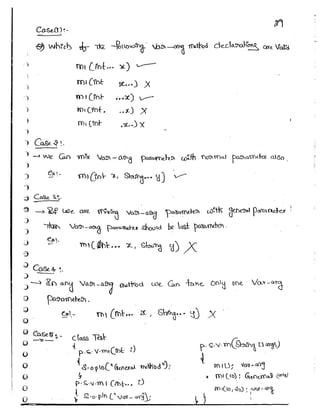 39
Case(1):-
which of the following var-arg method declarations are Valid
m1 (int... x) ✓
m1 (int x...) X
m1 (int ...x) ✓
m1 (int, ..x) X
m1 (int .x..) X
Case 2:-
→ We Can mix Var-arg parameter with normal parameter also.
Ex:- m1(int x, String... y) ✓
Case 3:-
→ If we are mixing Var-arg parameter with general Parameter
Then Var-arg parameter should be last parameter.
Ex:- m1(int... x, String y) X
Case 4:-
→ In any Var-arg method we Can take Only one Var-arg
Parameter.
Ex:- m1 (int... x, String... y) X
Case 5:- class Test
{
p.s.v.m1(int i)
{
S.o.pln("General method");
}
p.s.v.m1 (int... i)
{
S.o.pln("var-arg");
}
p.s.v.m(String[] args)
{
m1(); var-arg
m1(10); General
m1(10,20); var-arg
} }